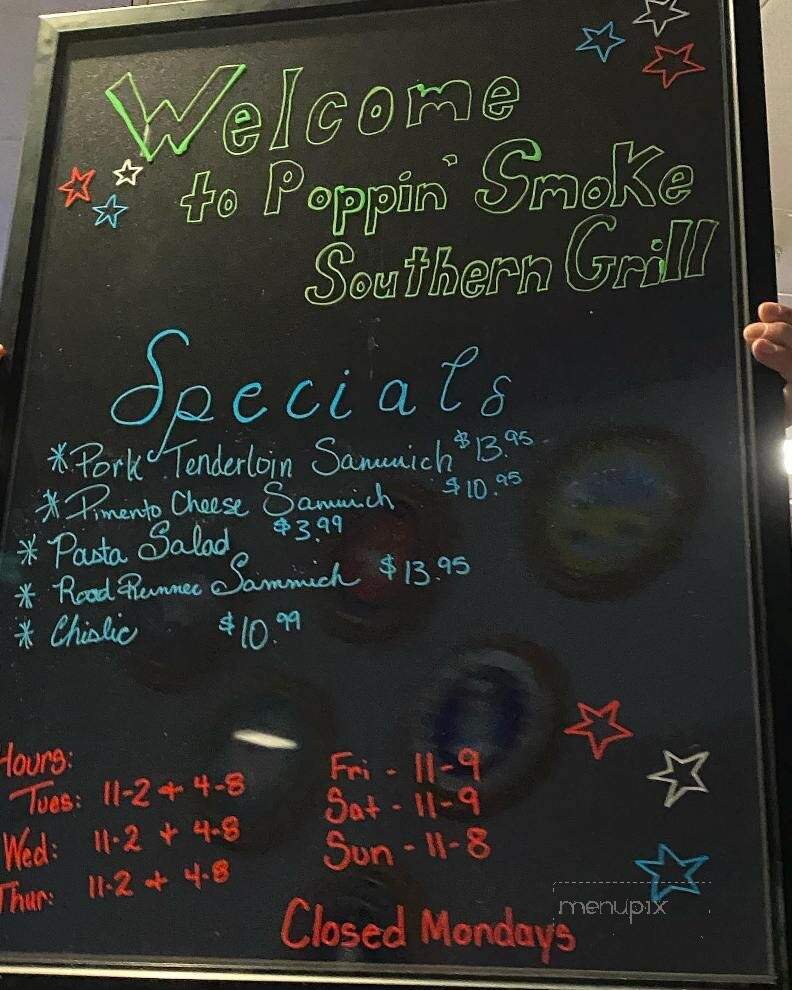 Welcome
to Poppin' Smoke
Southern Grill
Specials
* Pork Tenderloin Sammich $13.95
* Pimento Cheese Sammich $10.95
* Pasta Salad $3.99
* Road Runner Sammich $13.95
* Chislic $10.99
Hours:
Tues: 11-2 + 4-8
Wed: 11-2 + 4-8
Thur: 11-2 + 4-8
Fri - 11-9
Sat - 11-9
Sun - 11-8
Closed Mondays
menupix